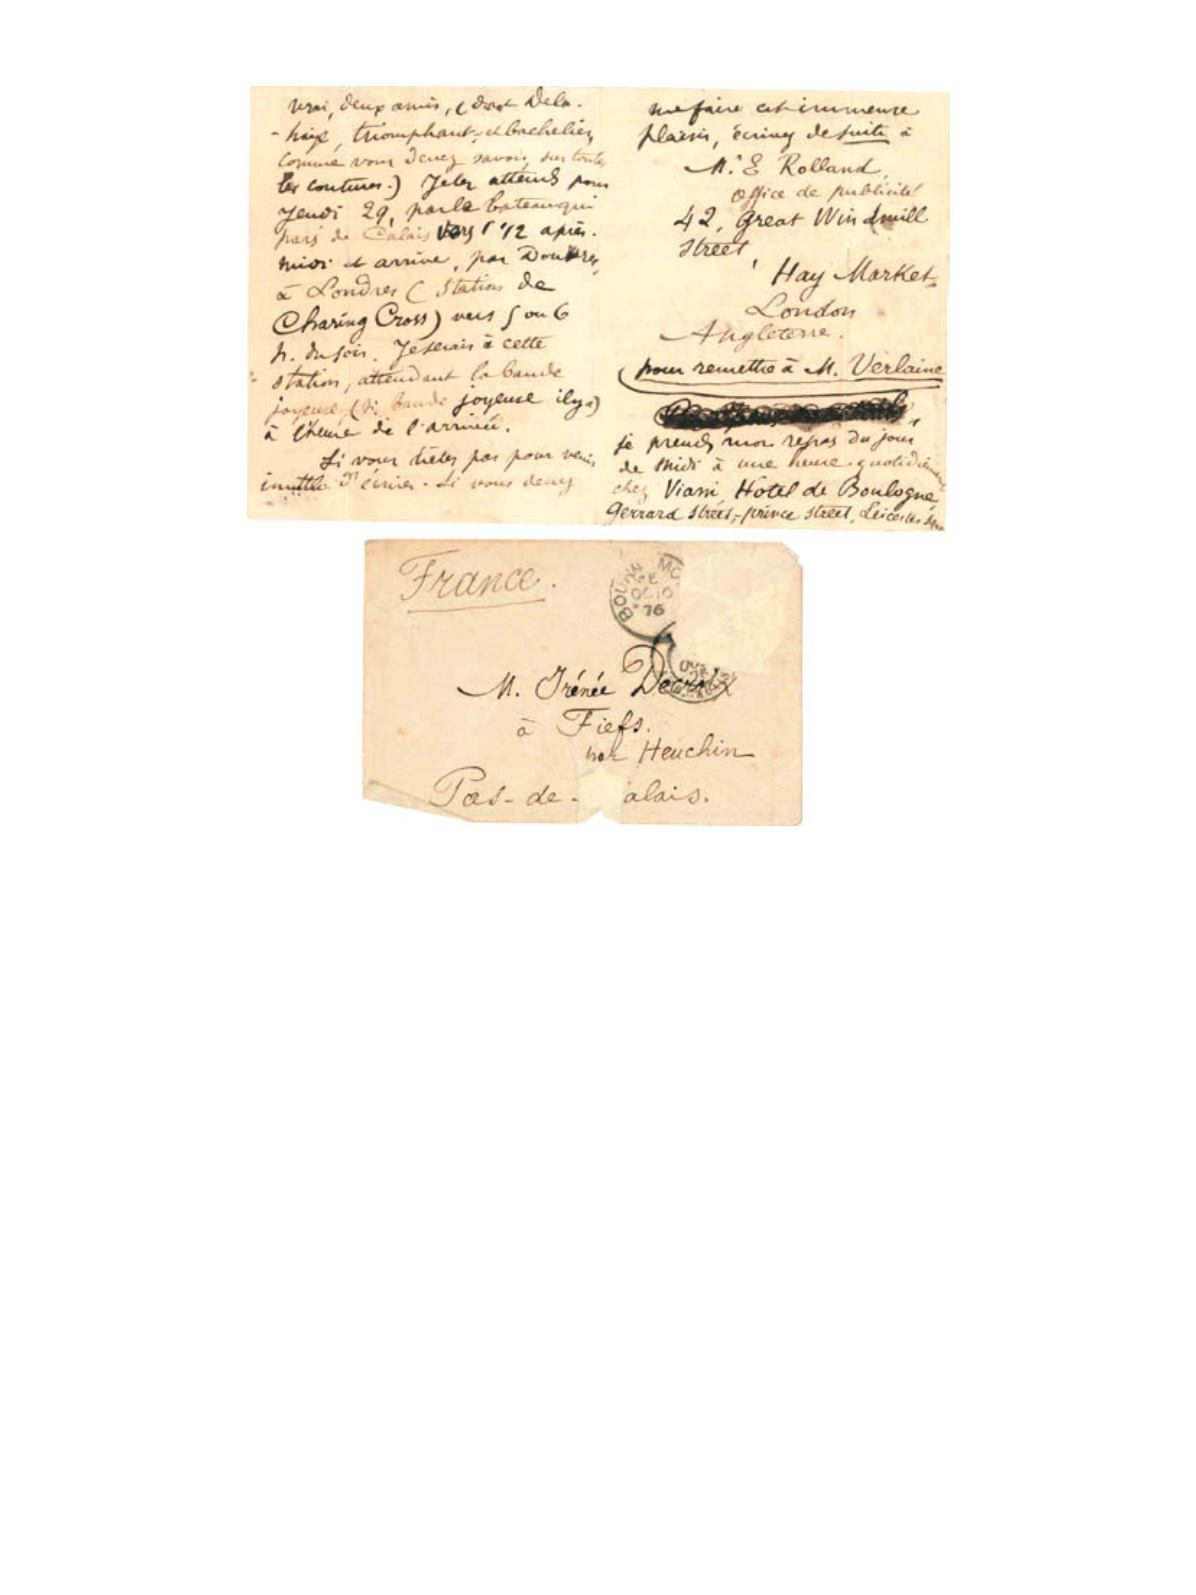 vrai, deux amis, (dont Dela-
-haye, triomphant, et bachelier,
comme vous devez savoir, sur toutes
les coutures.) Je les attends pour
Jeudi 29, par le bateau qui
part de Calais vers 1 1/2 après-
midi et arrive, par Douvres,
à Londres (Station de
Charing Cross) vers 5 ou 6
h. du soir. Je serais à cette
station, attendant la bande
joyeuse, (si bande joyeuse il y a)
à l'heure de l'arrivée.
Si vous n'êtes pas pour venir
inutile d'écrire. Si vous devez
me faire cet immense
plaisir, écrivez de suite à
Mr. E Rolland,
Office de publicité
42, Great Windmill
Street,
Hay Market,
London
Angleterre.
(pour remettre à M. Verlaine
je prends mon repas du jour
de midi à une heure quotidiennement
chez Viani Hotel de Boulogne,
Gerrard Street, prince street, Leicester Sqre
France.
BOURN MO
OC 10
76
M. Irénée Decroix
à Fiefs.
par Heuchin
Pas-de- alais.